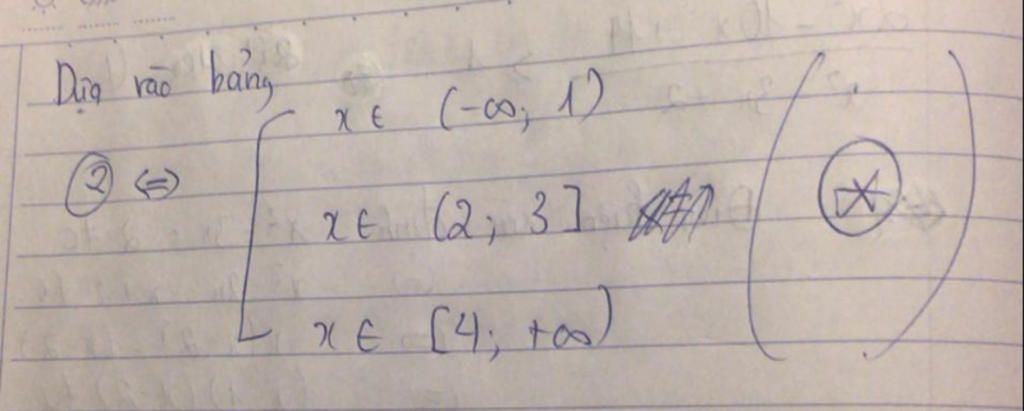 Dựa vào bảng
x ∈ (-∞; 1)
② ⇔ [ x ∈ (2; 3] (⊛)
x ∈ [4; +∞)